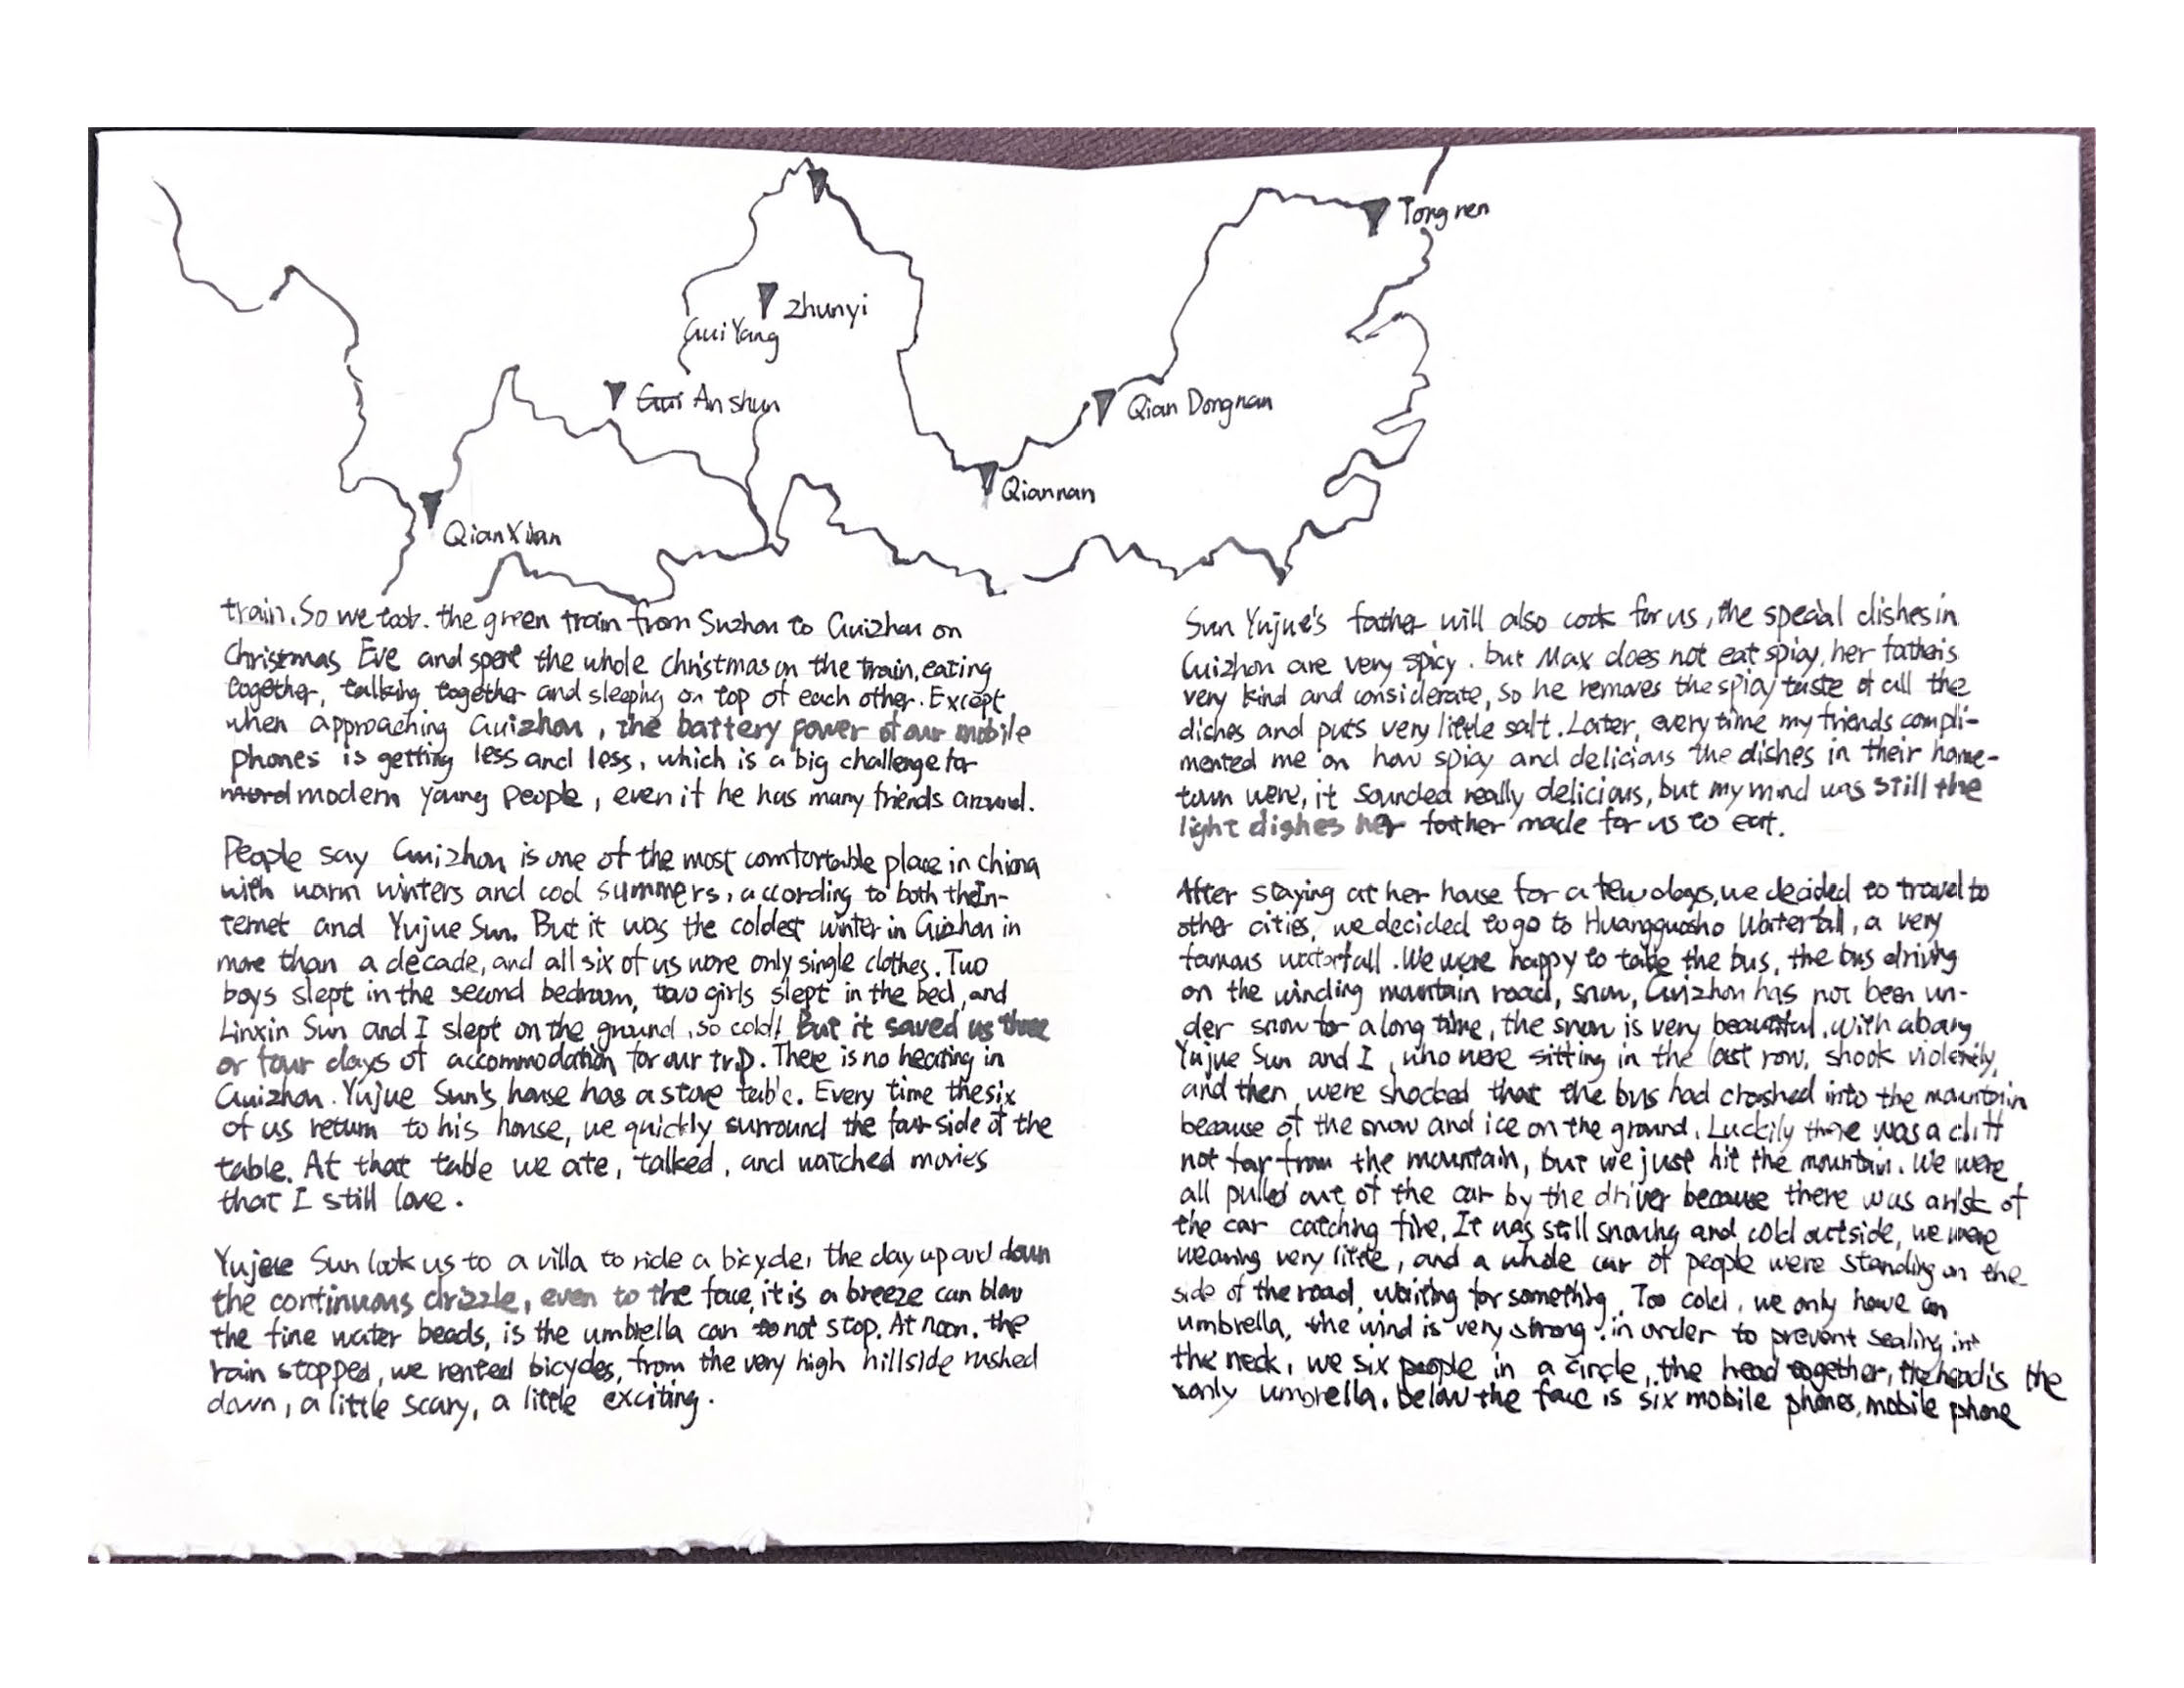 Tongren
Zhunyi
GuiYang
Gui An shun
Qian Dongnan
Qiannan
QianXinan
train. So we took. the green train from Suzhou to Guizhou on
Christmas Eve and spent the whole christmas on the train, eating
together, talking together and sleeping on top of each other. Except
when approaching Guizhou, the battery power of our mobile
phones is getting less and less, which is a big challenge for
mord modern young people, even if he has many friends around.
People say Guizhou is one of the most comfortable place in china
with warm winters and cool summers, according to both the In-
ternet and Yujue Sun. But it was the coldest winter in Guizhou in
more than a decade, and all six of us wore only single clothes. Two
boys slept in the second bedroom, two girls slept in the bed, and
Linxin Sun and I slept on the ground, so cold! But it saved us three
or four days of accommodation for our trip. There is no heating in
Guizhou. Yujue Sun's house has a stove table. Every time the six
of us return to his house, we quickly surround the four side of the
table. At that table we ate, talked, and watched movies
that I still love.
Yujue Sun took us to a villa to ride a bicycle, the day up and down
the continuous drizzle, even to the face, it is a breeze can blow
the fine water beads, is the umbrella can to not stop. At noon, the
rain stopped, we rented bicycles, from the very high hillside rushed
down, a little scary, a little exciting.
Sun Yujue's father will also cook for us, the special dishes in
Guizhou are very spicy. but Max does not eat spicy, her father is
very kind and considerate, so he removes the spicy taste of all the
dishes and puts very little salt. Later, every time my friends compli-
mented me on how spicy and delicious the dishes in their home-
town were, it sounded really delicious, but my mind was still the
light dishes her father made for us to eat.
After staying at her house for a few days, we decided to travel to
other cities, we decided to go to Huangguosho Waterfall, a very
famous waterfall. We were happy to take the bus, the bus driving
on the winding mountain road, snow, Guizhou has not been un-
der snow for a long time, the snow is very beautiful. With a bang,
Yujue Sun and I, who were sitting in the last row, shook violently,
and then were shocked that the bus had crashed into the mountain
because of the snow and ice on the ground. Luckily there was a cliff
not far from the mountain, but we just hit the mountain. We were
all pulled out of the car by the driver because there was a risk of
the car catching fire. It was still snowing and cold outside, we were
wearing very little, and a whole car of people were standing on the
side of the road, waiting for something. Too cold, we only have an
umbrella, the wind is very strong. in order to prevent sealing in
the neck, we six people in a circle, the head together, the head is the
only umbrella. below the face is six mobile phones, mobile phone